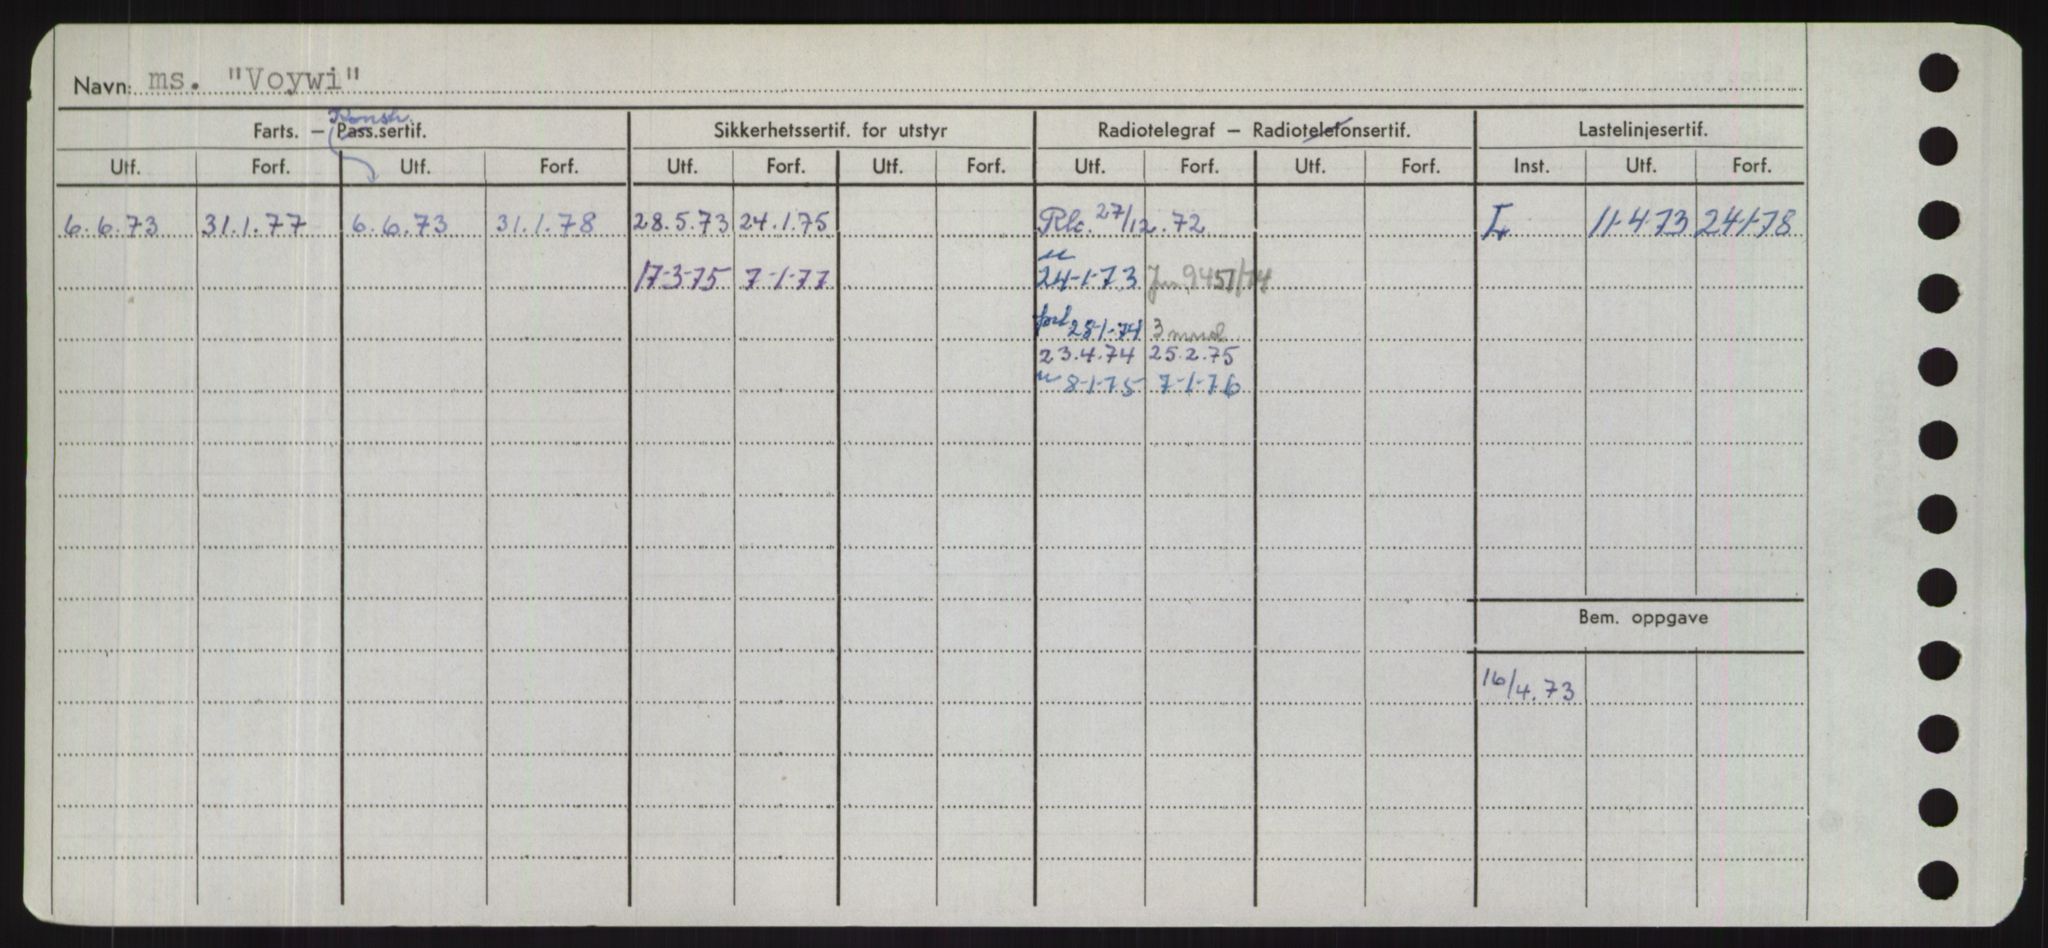 Navn: ms. "Voywi"
Konstr.
Farts. – Pass.sertif. Sikkerhetssertif. for utstyr Radiotelegraf – Radiotelefonsertif. Lastelinjesertif.
Utf. Forf. Utf. Forf. Utf. Forf. Utf. Forf. Utf. Forf. Utf. Forf. Inst. Utf. Forf.
6.6.73 31.1.77 6.6.73 31.1.78 28.5.73 24.1.75 27/12.72 11-4-73 24-1-78
17-3-75 7-1-77 24-1-73
28-1-74 3 mnd
23.4.74 25.2.75
8-1-75 7-1-76
Bem. oppgave
16/4.73